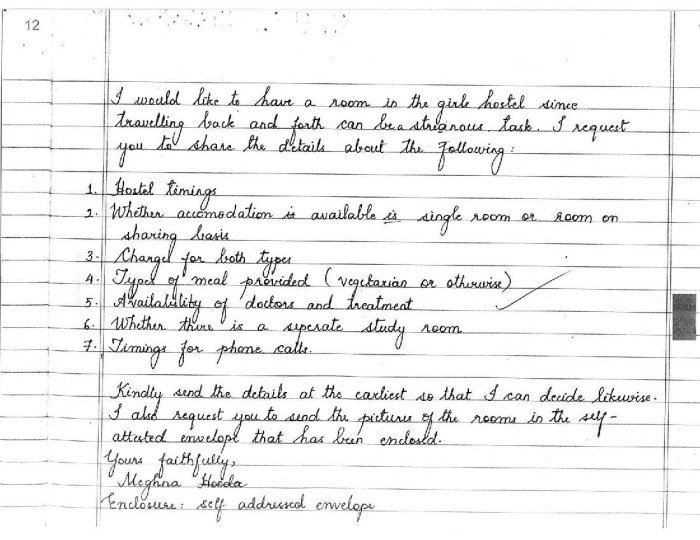 12
I would like to have a room in the girls hostel since
travelling back and forth can be a strignous task. I request
you to share the details about the following:
1. Hostel timings
2. Whether accomodation is available is single room or room on
sharing basis
3. Charges for both types
4. Types of meal provided (vegetarian or otherwise)
5. Availability of doctors and treatment
6. Whether there is a seperate study room
7. Timings for phone calls.
Kindly send the details at the earliest so that I can decide likewise.
I also request you to send the pictures of the rooms in the self-
attested envelope that has been enclosed.
Yours faithfully,
Meghna Hooda
Enclosure: self addressed envelope